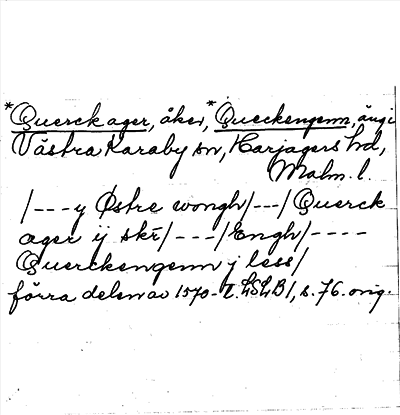 *Querck ager, åker, *Queckengenn, äng i
Västra Karaby sn, Harjagers hd,
Malm. l.
/---y Østre wongh/--/Querck
ager ij skr̄/---/Engh/----
Querckengenn j less/
förra delen av 1570-t. LSLB I, s. 76. orig.